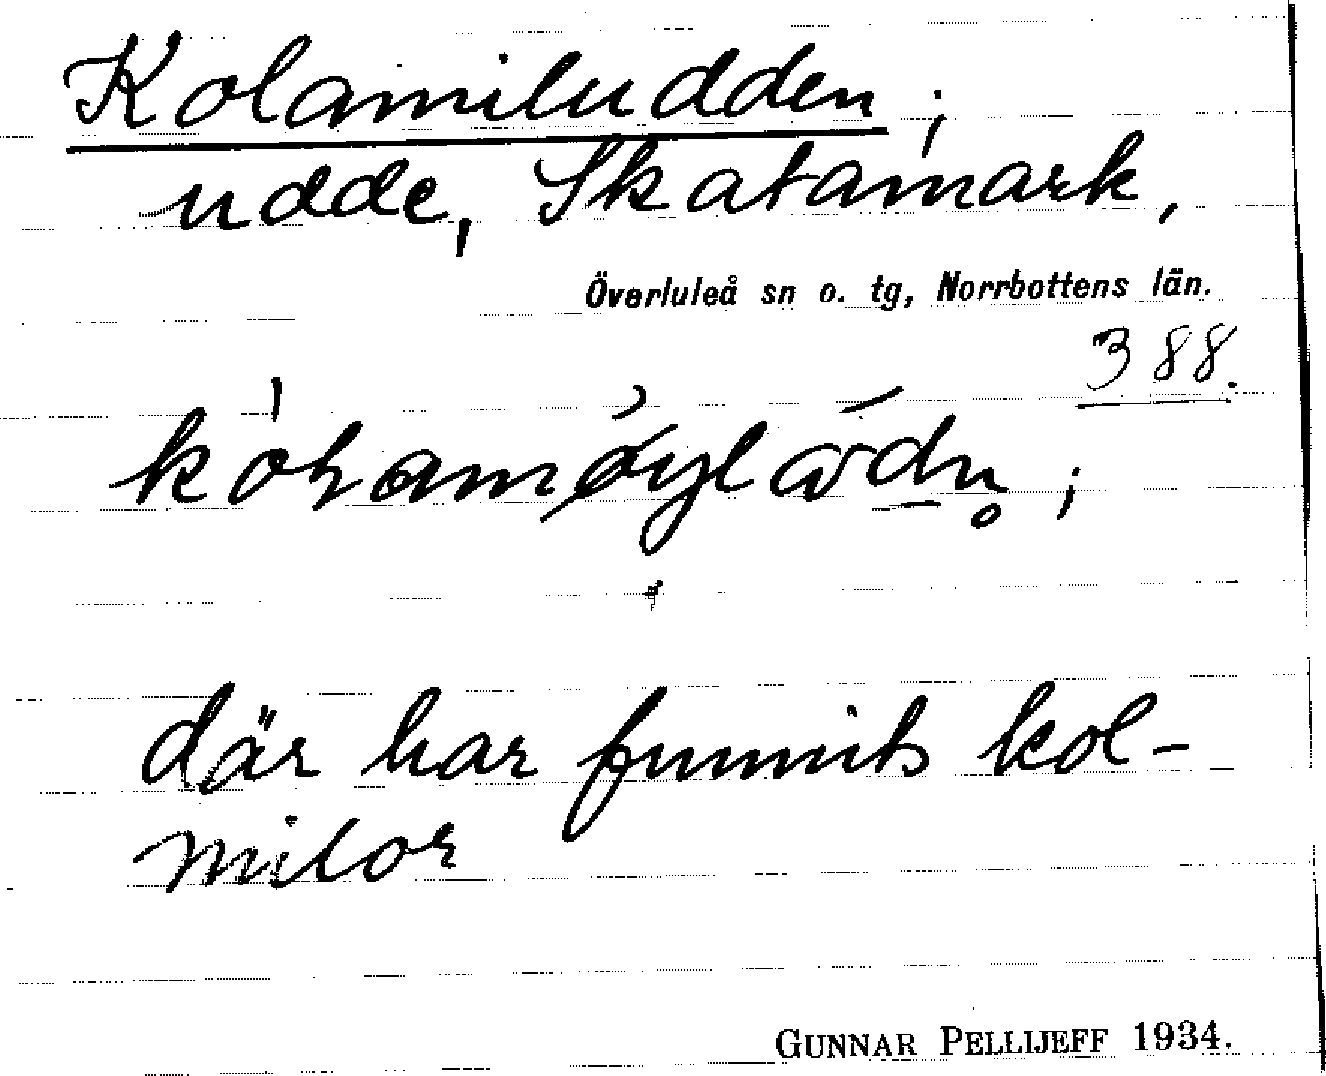 Kolamiludden;
udde, Skatamark,
Överluleå sn o. tg, Norrbottens län.
388.
där har funnits kol-
milor
GUNNAR PELLIJEFF 1934.